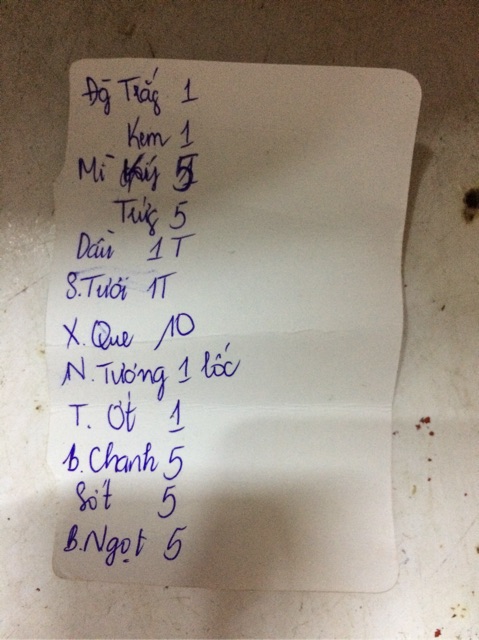 Đg Trắg 1
Kem 1
Mì Ký 5
Trứg 5
Dầu 1T
S.Tươi 1T
X. Que 10
N. Tương 1 lốc
T. Ớt 1
B. Chanh 5
Sốt 5
B. Ngọt 5